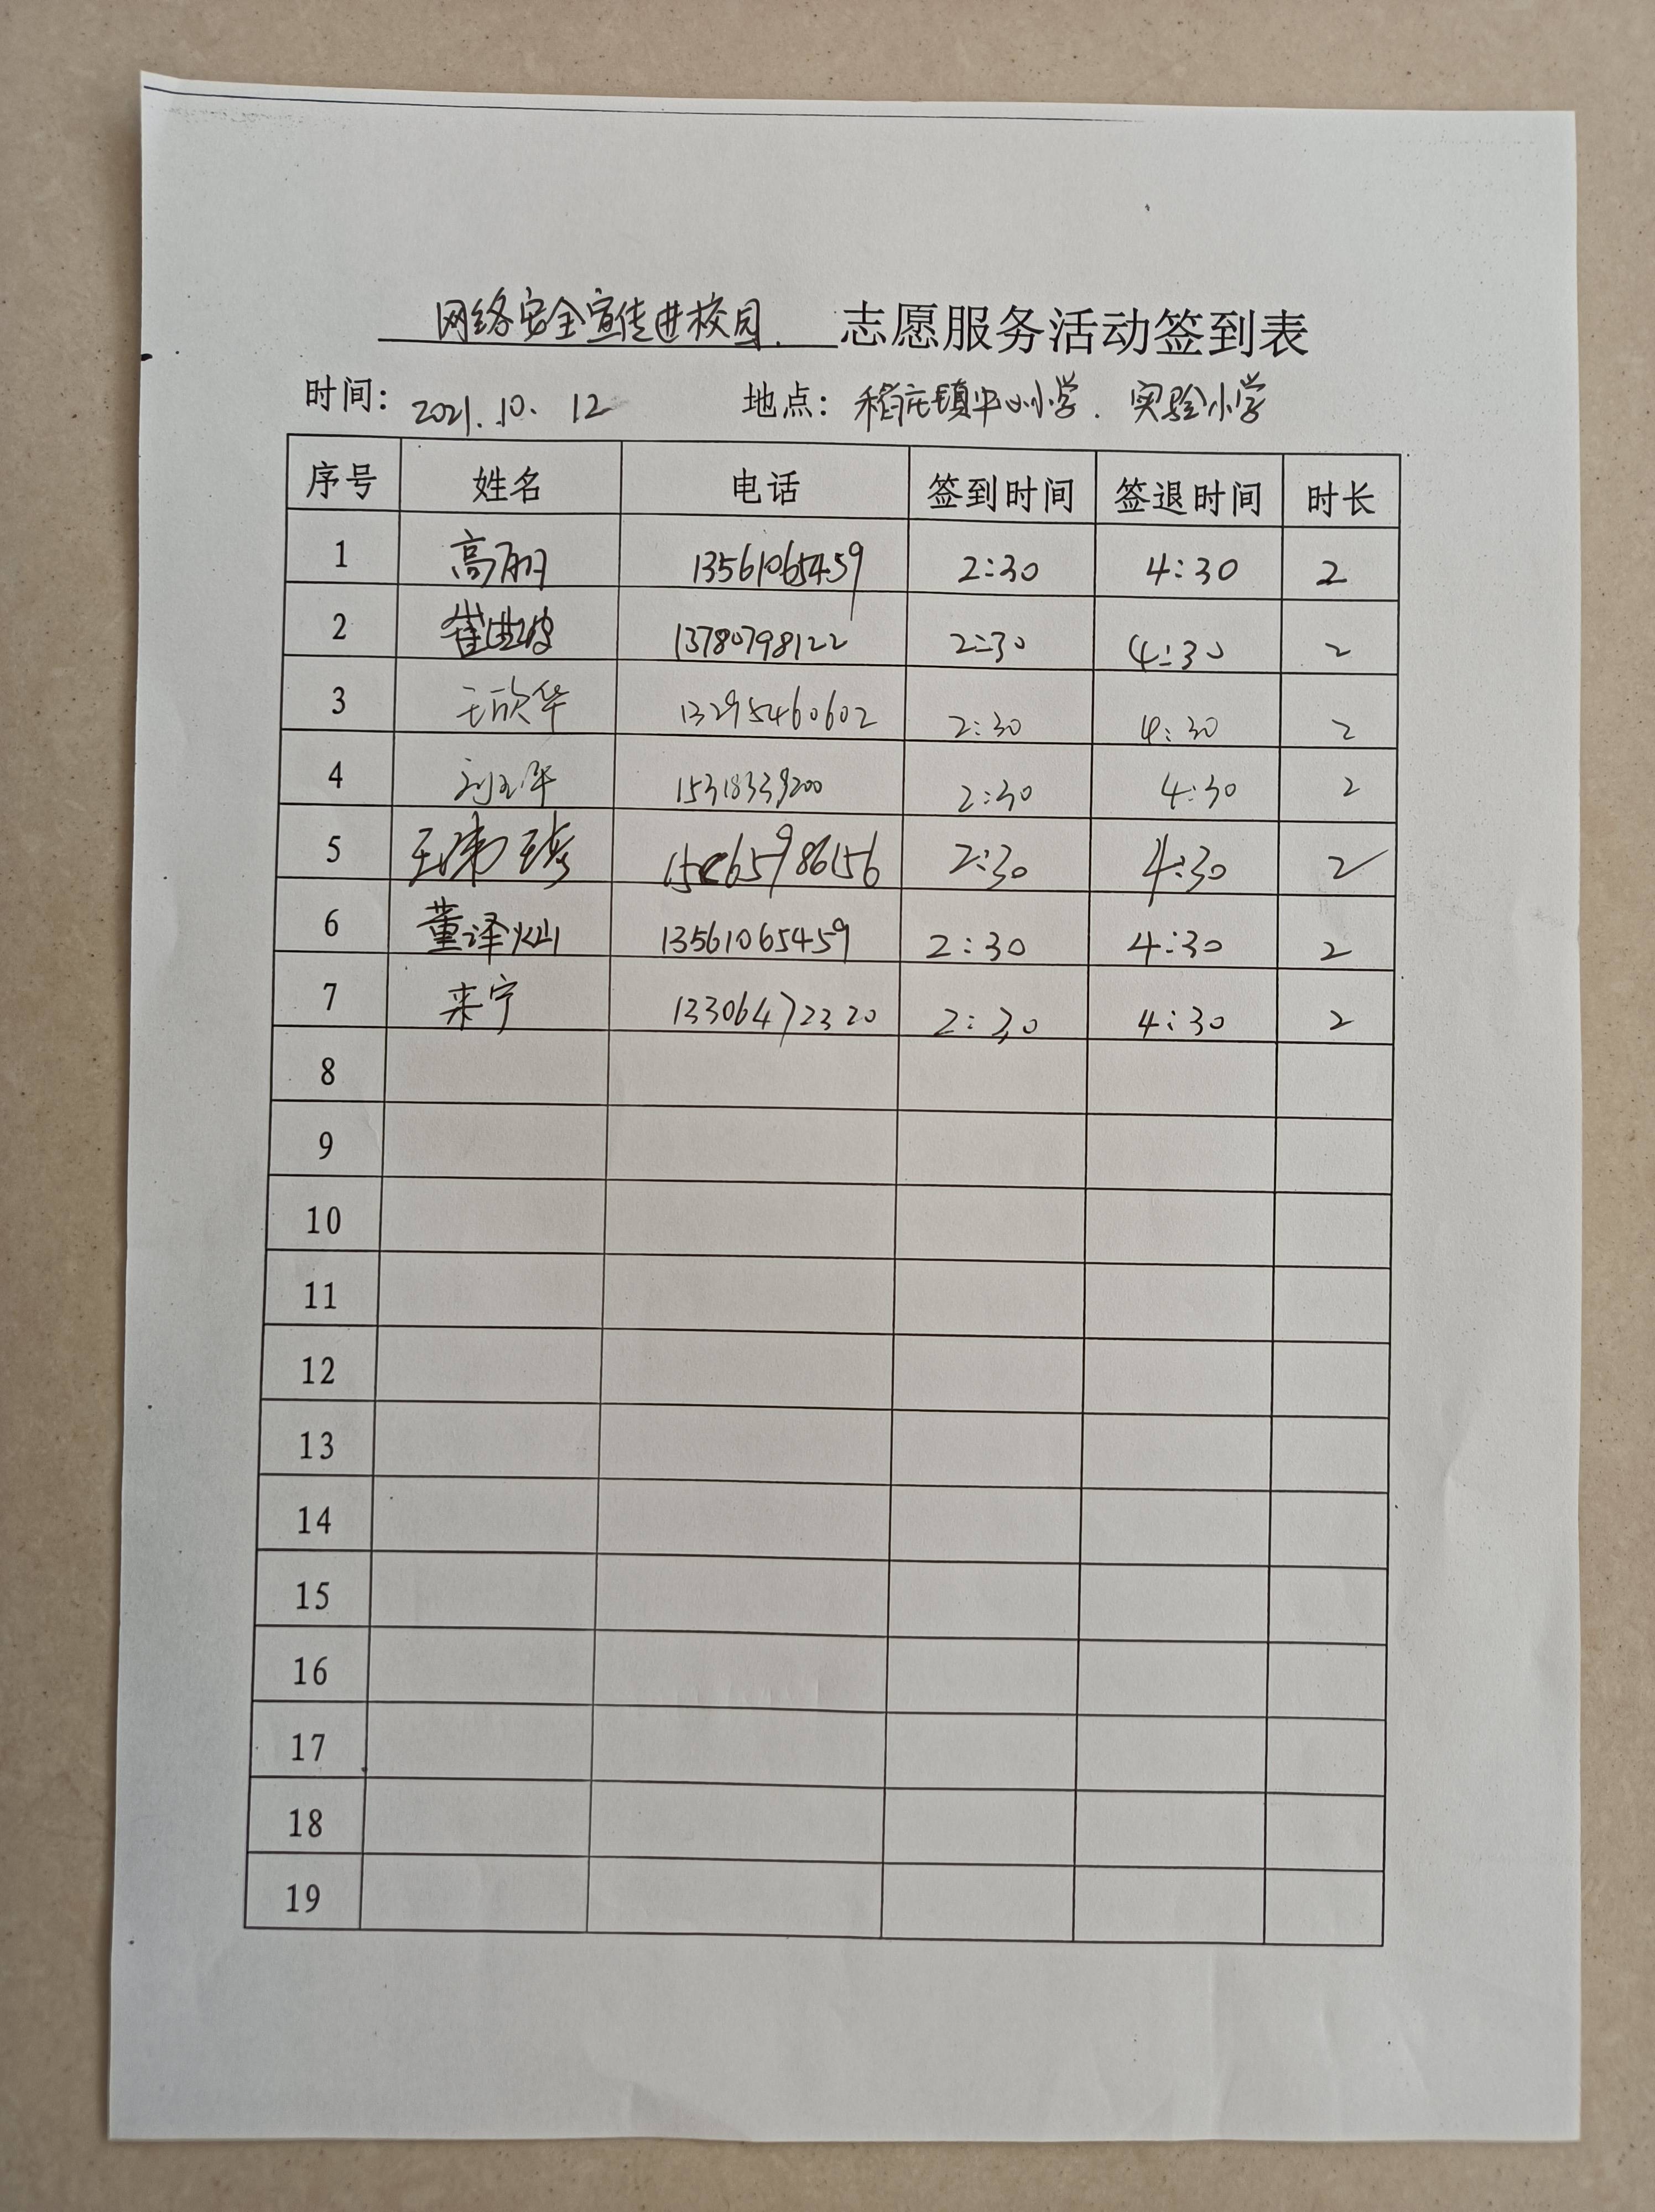 网络安全宣传进校园. 志愿服务活动签到表
时间: 2021.10.12 地点: 稻庄镇中心小学. 实验小学
序号 姓名 电话 签到时间 签退时间 时长
1 高丽 13561065459 2:30 4:30 2
2 崔曲波 13780798122 2:30 4:30 2
3 王欣华 13295460602 2:30 4:30 2
4 15318339200 2:30 4:30 2
5 2:30 4:30 2
6 董泽灿 13561065459 2:30 4:30 2
7 来宁 13306472320 2:30 4:30 2
8
9
10
11
12
13
14
15
16
17
18
19